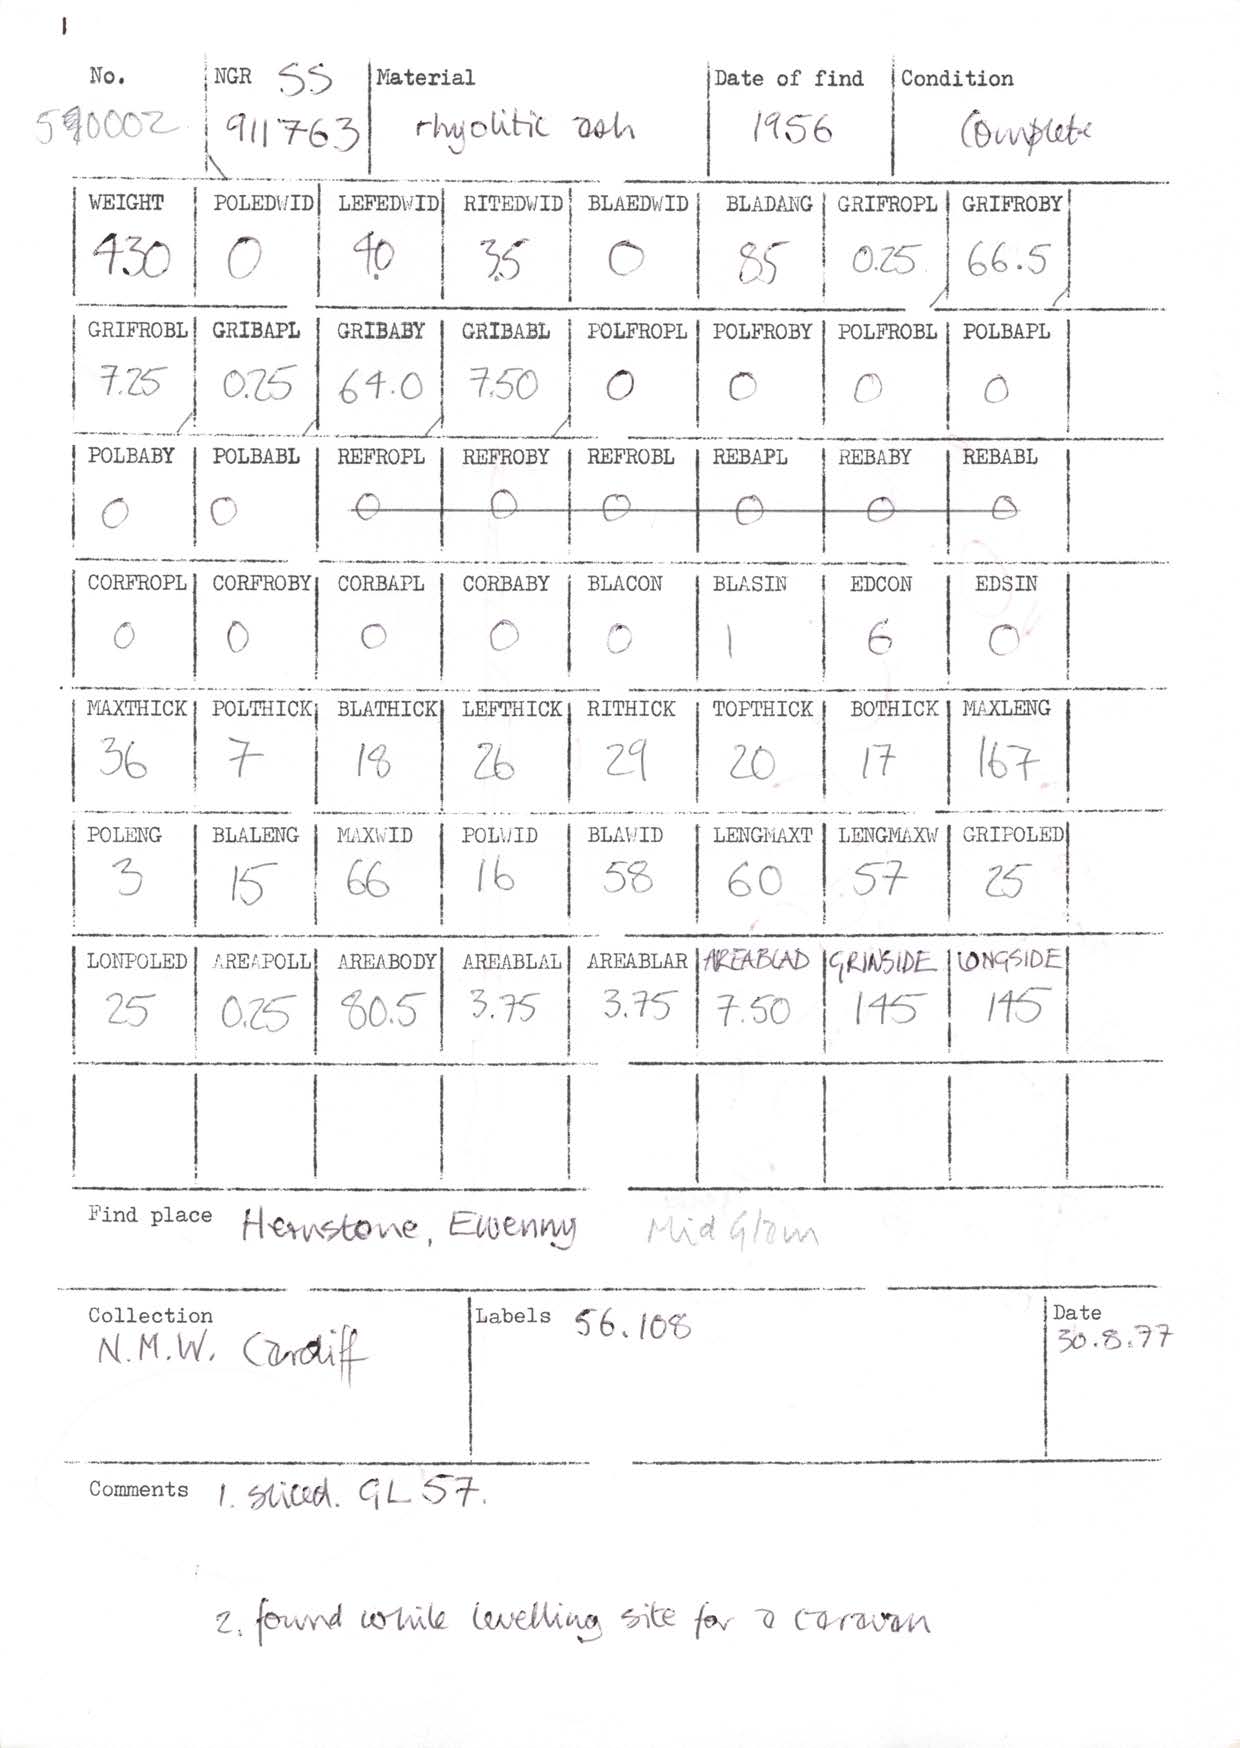 1
No. NGR SS Material Date of find Condition
590002 911763 rhyolitic ash 1956 Complete
WEIGHT POLEDWID LEFEDWID RITEDWID BLAEDWID BLADANG GRIFROPL GRIFROBY
430 0 4.0 3.5 0 85 0.25 66.5
GRIFROBL GRIBAPL GRIBABY GRIBABL POLFROPL POLFROBY POLFROBL POLBAPL
7.25 0.25 64.0 7.50 0 0 0 0
POLBABY POLBABL REFROPL REFROBY REFROBL REBAPL REBABY REBABL
0 0 0 0 0 0 0 0
CORFROPL CORFROBY CORBAPL CORBABY BLACON BLASIN EDCON EDSIN
0 0 0 0 0 1 6 0
MAXTHICK POLTHICK BLATHICK LEFTHICK RITHICK TOPTHICK BOTHICK MAXLENG
36 7 18 26 29 20 17 167
POLENG BLALENG MAXWID POLWID BLAWID LENGMAXT LENGMAXW GRIPOLED
3 15 66 16 58 60 57 25
LONPOLED AREAPOLL AREABODY AREABLAL AREABLAR AREABLAD GRINSIDE LONGSIDE
25 0.25 80.5 3.75 3.75 7.50 145 145
Find place Hernstone, Ewenny Mid Glam
Collection Labels 56.108 Date
N.M.W. Cardiff 30.8.77
Comments 1. sliced. GL 57.
2. found while levelling site for a caravan